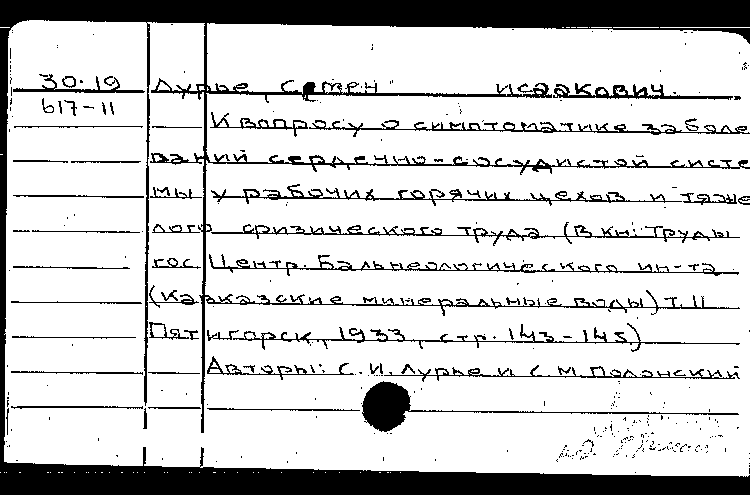 30.19 Лурье, Семен Исаакович.
617-11
К вопросу о симптоматике заболе
ваний сердечно-сосудистой систе
мы у рабочих горячих цехов и тяже
лого физического труда (В кн: Труды
гос. Центр. Бальнеологического ин-та
(Кавказские минеральные воды) т. II
Пятигорск, 1933, стр. 143-145)
Авторы: С.И. Лурье и С.М. Полонский